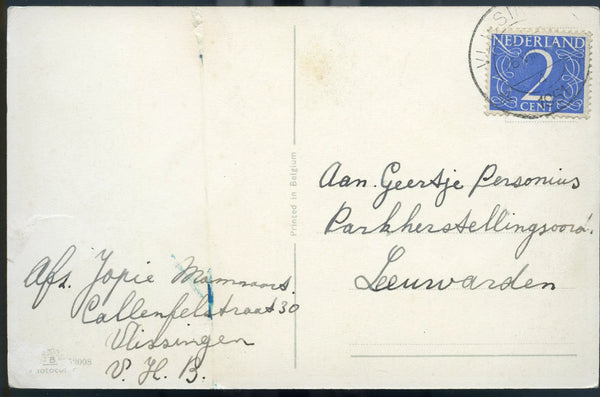 VLISSI
NEDERLAND
2
CENT
Printed in Belgium
Aan. Geertje Personius
Parkherstellingsoord.
Leeuwarden
Afz. Jopie
Callenfelstraat 30
Vlissingen
V. H. B.